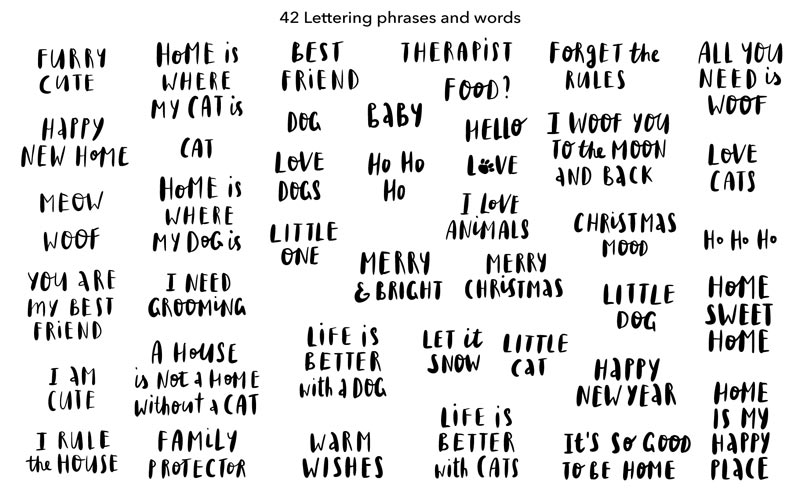 42 Lettering phrases and words
FURRY
CUTE
HAPPY
NEW HOME
MEOW
WOOF
YOU ARE
MY BEST
FRiEND
I AM
CUTE
I RULE
the HOUSE
HoME is
WHERE
MY CAT is
CAT
HoME is
WHERE
MY DoG is
I NEED
GROOMiNG
A HoUSE
is Not a HoME
without a CAT
FAMiLY
PROTECToR
BEST
FRiEND
DOG
LOVE
DOGS
LITTLE
ONE
THERAPiST
FOOD?
BABY
HELLO
Ho Ho
Ho
LOVE
I LoVE
ANiMALS
MERRY
& BRIGHT
MERRY
CHRiSTMAS
LiFE iS
BETTER
with a DOG
LET it
SNOW
LITTLE
CaT
LiFE iS
BETTER
with CATS
WARM
WISHES
FORGET the
RULES
I WOOF YOU
TO the MOON
AND BACK
CHRiSTMAS
MOOD
LITTLE
DOG
HAPPY
NEW YEAR
It'S So GOOD
TO BE HOME
ALL YOU
NEED is
WOOF
LoVE
CATS
Ho Ho Ho
HOME
SWEET
HOME
HOME
IS MY
HAPPY
PLACE